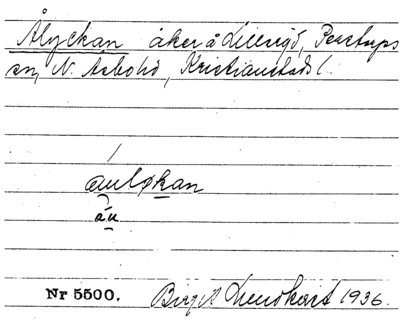 Ålyckan åker å Lilleryd, Perstorps
sn, N. Åsbo hd, Kristianstads l.
auløkan
áu
Nr 5500. Birgit Lundkvist 1936.